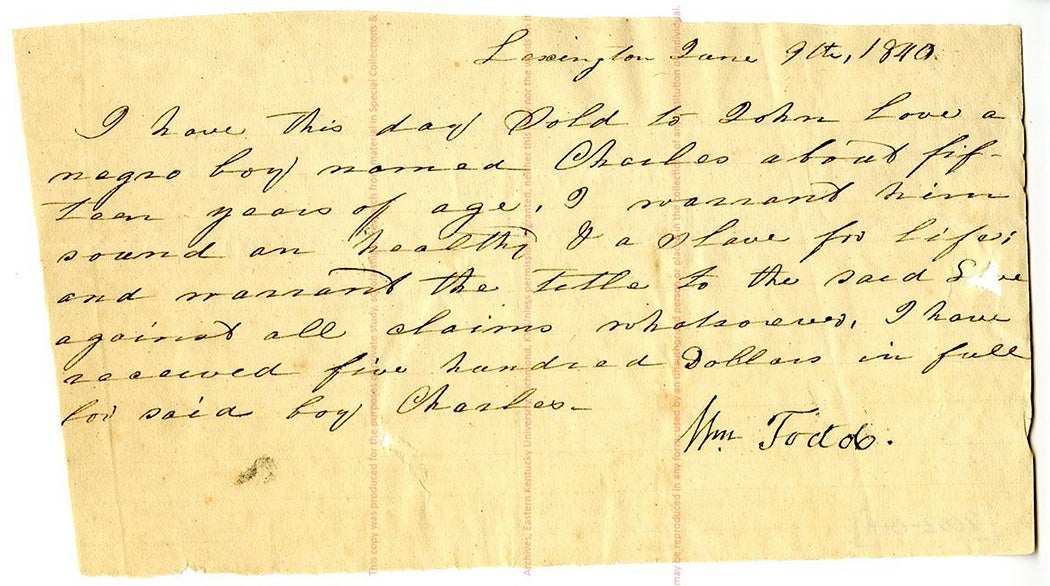 Lexington June 9th, 1840.
I have this day Sold to John Love a
negro boy named Charles about fif-
teen years of age, I warrant him
sound an healthy & a slave for life;
and warrant the title to the said
against all claims whatsoever, I have
received five hundred Dollars in full
for said boy Charles-
Wm. Todd.
This copy was produced for the purposes of private study, research from material in Special Collections &
Archives, Eastern Kentucky University, Richmond, KY. Unless permission is granted, neither the nor the words on it
may be reproduced in any form, used by an unauthorized person, or placed in the collection of any institution or individual.